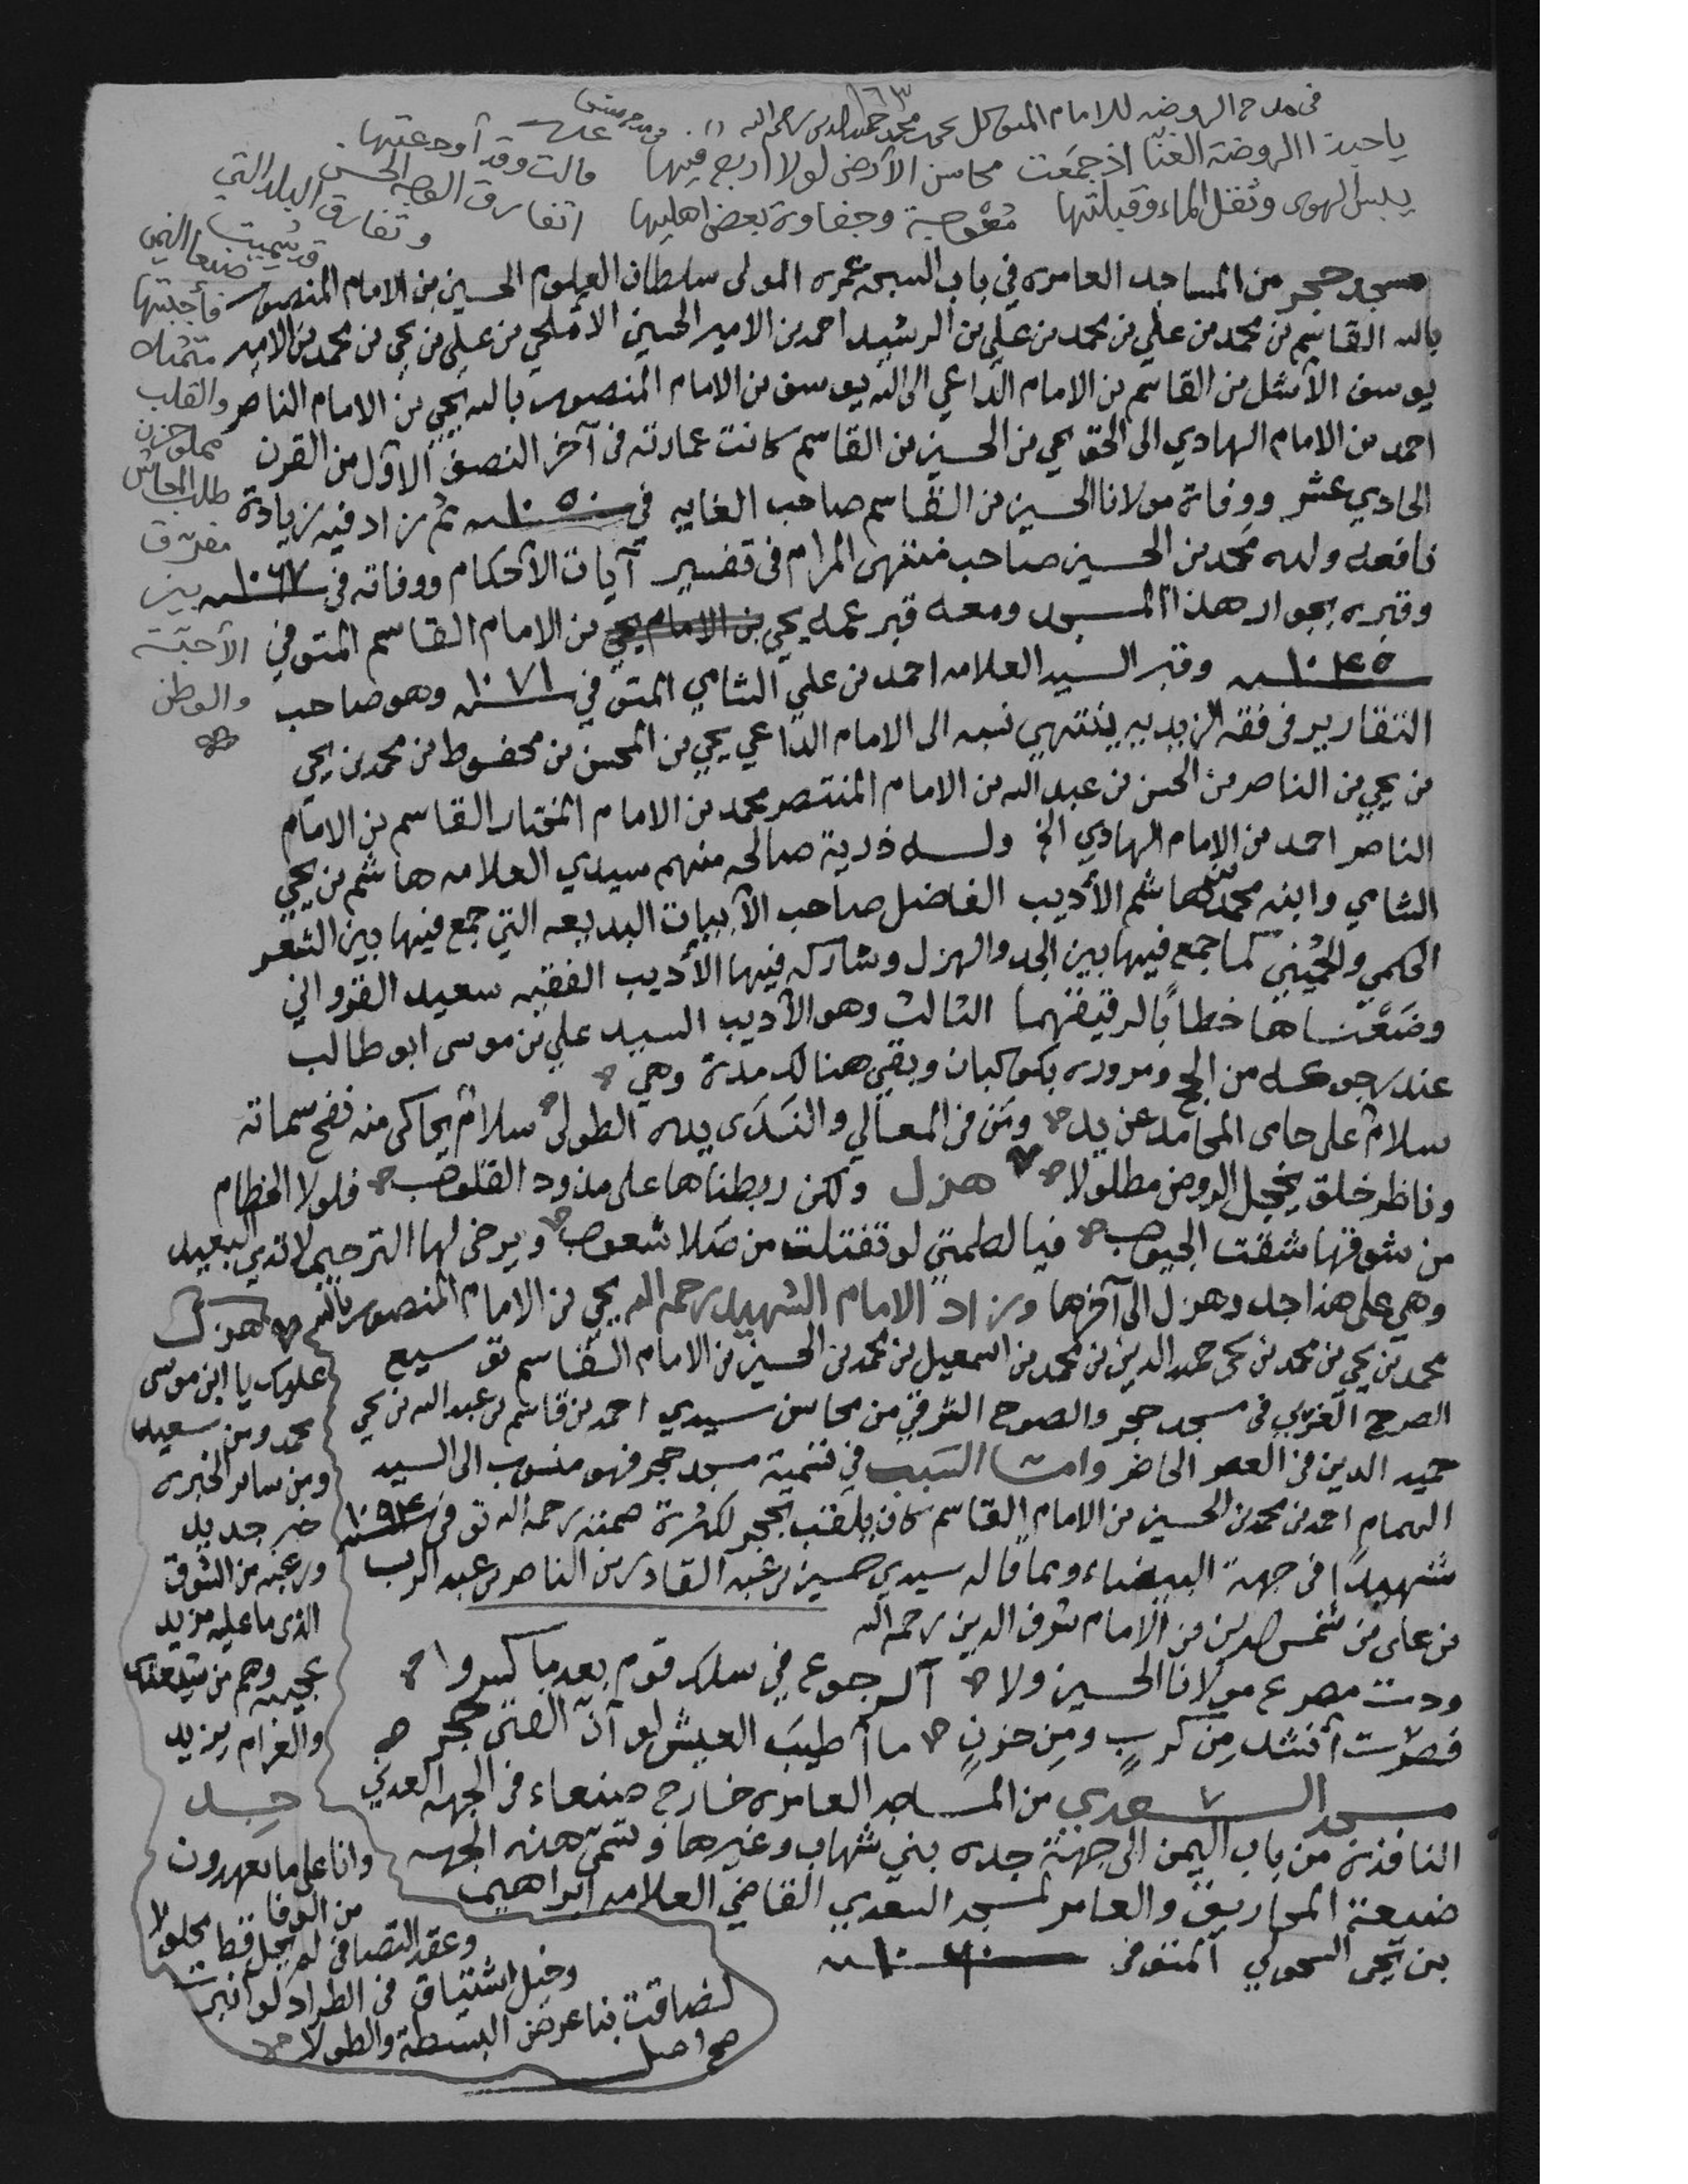 ١٦٣
في مدح الروضه للامام المتوكل يحيى محمد حميد الدين رحمه الله
ياحبذا الروضة الغنّا اذ جمَعت محاسن الأرض لولا اربع فيها
يبس الهوى وثقل الماء وقبلتها مُعْوجة وجفاوة بعض اهليها
قالت وقد أوجعتها
اتفارق الوجه الحسن
وتفارق البلد التي
قد سُميت صنعا اليمن
فأجبتها
متمثلا
والقلب
مملو حزن
طلب المعاش
مفرق
بين
الأحبّة
والوطن
مسجد حجر من المساجد العامره في باب السبحه عمره المولى سلطان العلوم الحسين بن الامام المنصور
بالله القاسم بن محمد بن علي بن محمد بن علي بن الرشيد احمد بن الامير الحسين الأملحي بن علي بن يحي بن محمد بن الامير
يوسف الأشل بن القاسم بن الامام الداعي الى الله يوسف بن الامام المنصور بالله يحي بن الامام الناصر
احمد بن الامام الهادي الى الحق يحي بن الحسين بن القاسم كانت عمارته في آخر النصف الأول من القرن
الحادي عشر ووفاة مولانا الحسين بن القاسم صاحب الغايه في ١٠٥٠ سنه ثم زاد فيه زيادة
نافعه ولده محمد بن الحسين صاحب منتهى المرام في تفسير آيات الأحكام ووفاته في ١٠٦٧ سنه
وقبره بجوار هذا المسجد ومعه قبر عمه يحي بن الامام يحي بن الامام القاسم المتوفي
١٠٤٥ سنه وقبر السيد العلامه احمد بن علي الشامي المتوفي ١٠٧١ سنه وهو صاحب
التقارير في فقه الزيديه ينتهي نسبه الى الامام الداعي يحي بن المحسن بن محفوظ بن محمد بن يحي
بن يحي بن الناصر بن الحسن بن عبدالله بن الامام المنتصر محمد بن الامام المختار القاسم بن الامام
الناصر احمد بن الامام الهادي الخ ولـه ذرية صالحه منهم سيدي العلامه هاشم بن يحي
الشامي وابنه محمد بن هاشم الأديب الفاضل صاحب الأبيات البديعه التي جمع فيها بين الشعر
الحكمي والحُميني كما جمع فيها بين الجد والهزل وشاركه فيها الأديب الفقيه سعيد القرواني
وضمَّناها خطاباً لرفيقهما الثالث وهو الأديب السيد علي بن موسى ابو طالب
عند رجوعه من الحج ومروره بكوكبان وبقي هنالك مدة وهي
سلامٌ على حاى المحامد عن يد ومَن في المعالي والنَدَى يده الطولى سلامٌ يحاكى منه نفح سماته
وناظر خلق يخجل الروض مطلولا هزل ولكن ربطناها على مذود القلوب فلولا الخطام
من شوقها شقت الجيوب فيا لطمتي لو تفتلت من صَلا شعوب ويرخى لها الترحيم لا تدي البعيد
وهي على هذا جد وهزل الى آخرها وزاد الامام الشهيد رحمه الله يحي بن الامام المنصور بالله
محمد بن يحي بن محمد بن يحي حميد الدين بن محمد بن اسمعيل بن محمد بن الحسين بن الامام القاسم توسيع
الصرح الغربي في مسجد حجر والصوح الشرقي من محاسن سيدي احمد بن قاسم بن عبدالله بن يحي
حميد الدين في العصر الحاضر وامـا السَبَب في تسمية مسجد حجر فهو منسوب الى السيد
الهمام احمد بن محمد بن الحسين بن الامام القاسم كان يلقب بحجر لكثرة صمته رحمه الله توفي ١٠٩٤ سنه
شهيداً في جهة البيضاء ومما قاله سيدي حسين بن عبد القادر بن الناصر بن عبد الرب
بن على بن شمس الدين بن الامام شرف الدين رحمه الله
ودت مصرع مولانا الحسين ولا آل رجوع في سلك قوم بعد ما كسروا
فصرْت أنشد مِن كربٍ ومِن حزنٍ ما أطيَب العيش لو أنّ الفتى حجر
مسجد السعدي من المساجد العامره خارج صنعاء في الجهه العدني
النافذه من باب اليمن الى جهة جده بني شهاب وغيرها وتسمى هذه الجهه
ضبعة المحاريق والعامر لمسجد السعدي القاضي العلامه ابراهيم
بن يحي السحولي المتوفى ١٠٦٠ سنه
هزل
علوك يا ابن موسى
محمد ومن سعيد
ومن ساير الخبره
خبر جديد
ورغبه من الشوق
الذي ما عليه مزيد
عجيبه وهم من
والغرام يزيد
جد
وانا على ما تعهدون
من الوفا
وعقد التصافي لم يحل قط محلولا
وخيل اشتياق في الطراد لو انبرت
لضاقت بنا عرض البسيطة والطولا
صح اصل